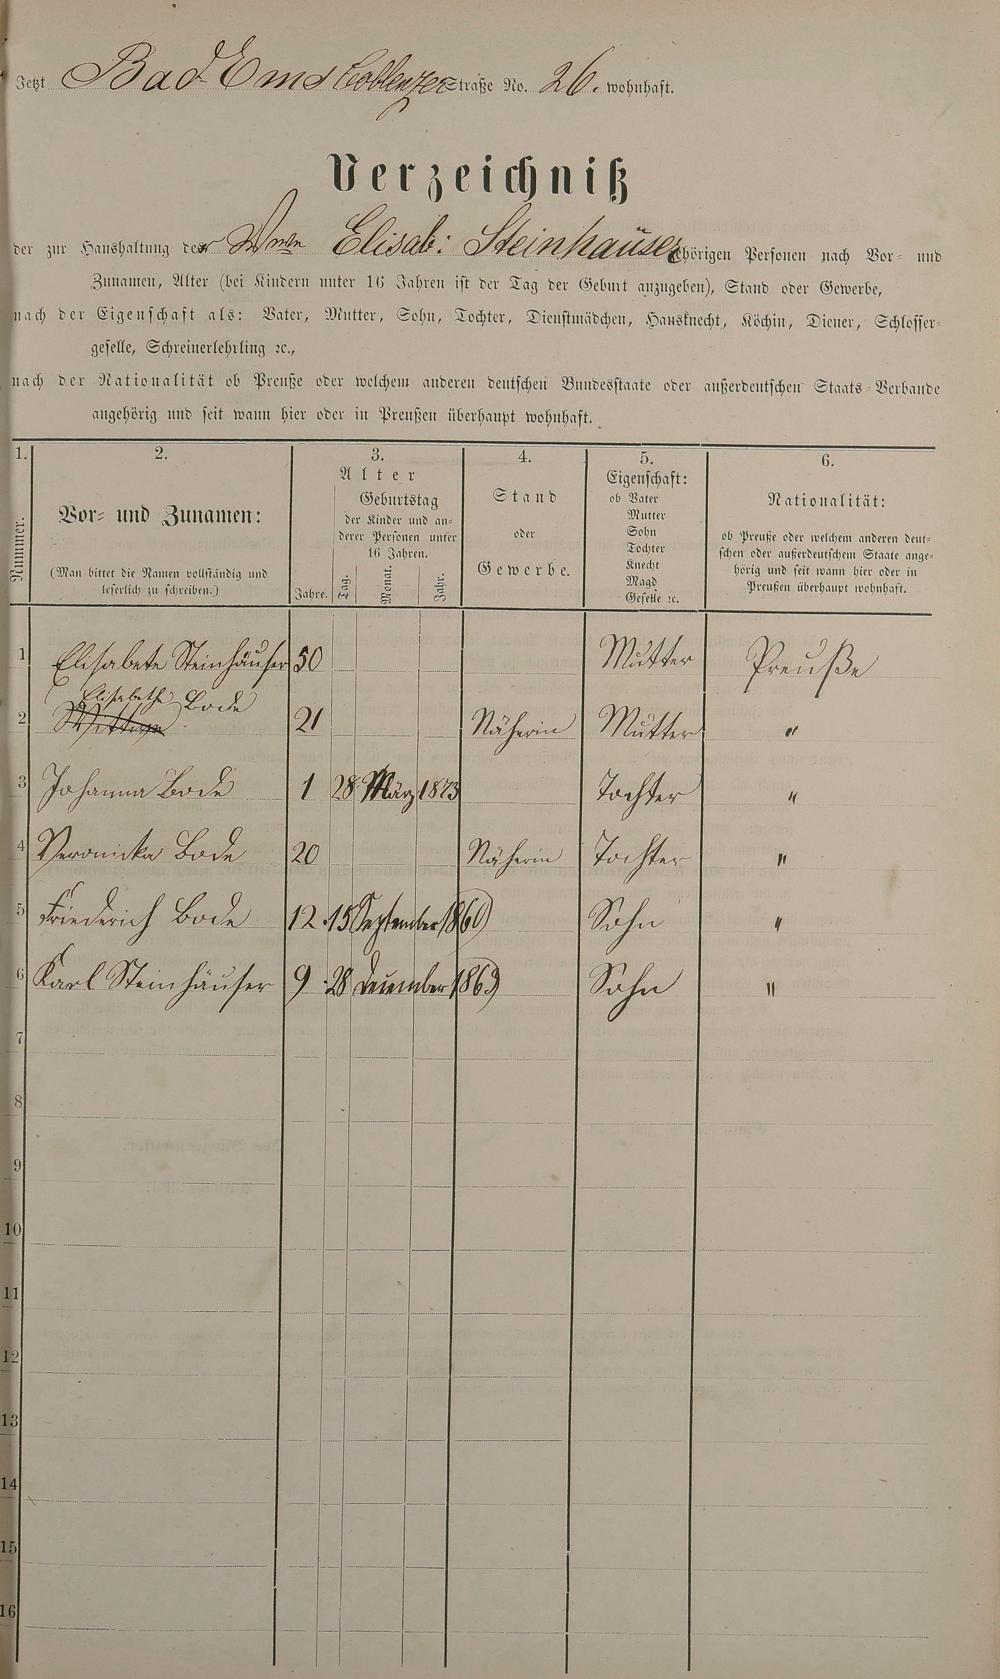 Jetzt Bad Ems Coblenzer Straße No. 26. wohnhaft.
Verzeichniß
der zur Haushaltung der Wwe Elisab: Steinhäuser gehörigen Personen nach Vor- und
Zunamen, Alter (bei Kindern unter 16 Jahren ist der Tag der Geburt anzugeben), Stand oder Gewerbe,
nach der Eigenschaft als: Vater, Mutter, Sohn, Tochter, Dienstmädchen, Hausknecht, Köchin, Diener, Schlosser-
geselle, Schreinerlehrling ꝛc.,
nach der Nationalität ob Preuße oder welchem anderen deutschen Bundesstaate oder außerdeutschen Staats-Verbande
angehörig und seit wann hier oder in Preußen überhaupt wohnhaft.
1. 2. 3. 4. 5. 6.
Nummer.
Vor- und Zunamen:
(Man bittet die Namen vollständig und
leserlich zu schreiben.)
Alter
Jahre.
Geburtstag
der Kinder und an-
derer Personen unter
16 Jahren.
Tag. Monat. Jahr.
Stand
oder
Gewerbe.
Eigenschaft:
ob Vater
Mutter
Sohn
Tochter
Knecht
Magd
Geselle ꝛc.
Nationalität:
ob Preuße oder welchem anderen deut-
schen oder außerdeutschem Staate ange-
hörig und seit wann hier oder in
Preußen überhaupt wohnhaft.
1 Elisabete Steinhäuser 50 Mutter Preuße
2 Elisabethe Bode 21 Näherin Mutter "
3 Johanna Bode 1 28 März 1873 Tochter "
4 Veronicka Bode 20 Näherin Tochter "
5 Friederich Bode 12 15 September Sohn "
6 Karl Steinhäuser 9 28 December Sohn "
7
8
9
10
11
12
13
14
15
16